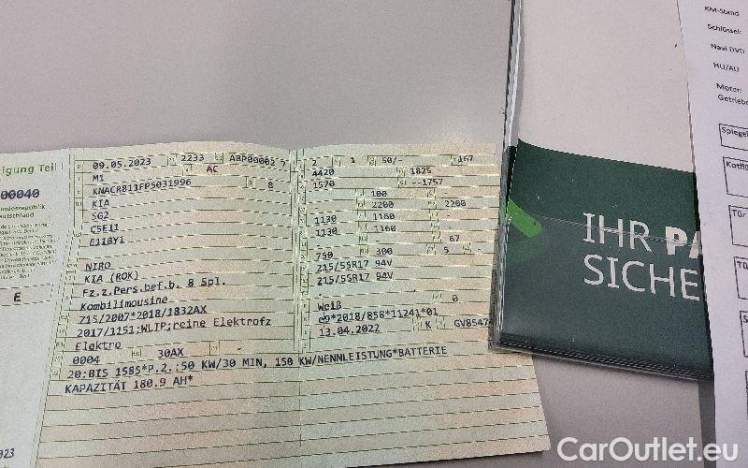 igung Teil
00040
E
023
09.05.2023 2233 ABP00002 5
M1 AC
KNACR811FP5031996 8
KIA
SG2
C5E11
E11BY1
NIRO
KIA (ROK)
Fz.z.Pers.bef.b. 8 Spl.
Kombilimousine
715/2007*2018/1832AX
2017/1151;WLTP;reine Elektrofz
Elektro
0004 30AX
20:BIS 1585*P.2.:50 KW/30 MIN, 150 KW/NENNLEISTUNG*BATTERIE
KAPAZITÄT 180.9 AH*
2 1 50/- 167
4420 1825
1570 --1757
100
2200 2200
1130 1160
1130 1160
67
750 300 5
215/55R17 94V
215/55R17 94V
Weiß 0
e9*2018/858*11241*01
13.04.2022 K GV8547
IHR PA
SICHE
KM-Stand
Schlüssel:
Navi DVD
HU/AU
Motor:
Getriebe
Spiegel
Kotflü
CarOutlet.eu